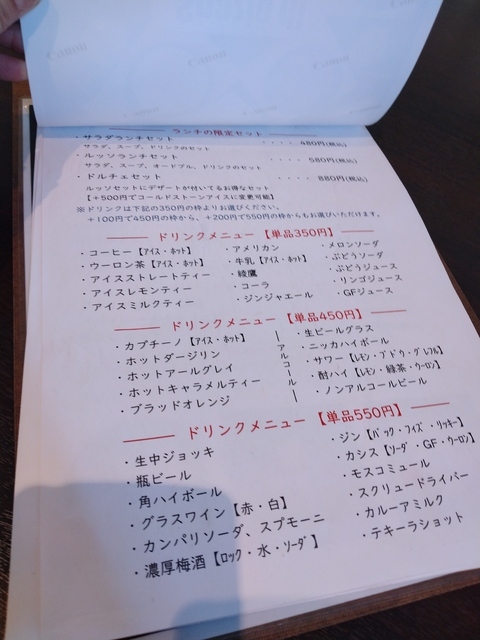 Canon
Canon
Canon
Canon
ランチの限定セット
・サラダランチセット ････ 480円(税込)
サラダ、スープ、ドリンクのセット
・ルッソランチセット ････ 580円(税込)
サラダ、スープ、オードブル、ドリンクのセット
・ドルチェセット ････ 880円(税込)
ルッソセットにデザートが付いてるお得なセット
【+500円でコールドストーンアイスに変更可能】
※ドリンクは下記の350円の枠よりお選びください。
+100円で450円の枠から、+200円で550円の枠からもお選びいただけます。
ドリンクメニュー【単品350円】
・コーヒー【アイス・ホット】
・ウーロン茶【アイス・ホット】
・アイスストレートティー
・アイスレモンティー
・アイスミルクティー
・アメリカン
・牛乳【アイス・ホット】
・綾鷹
・コーラ
・ジンジャエール
・メロンソーダ
・ぶどうソーダ
・ぶどうジュース
・リンゴジュース
・GFジュース
ドリンクメニュー【単品450円】
・カプチーノ【アイス・ホット】
・ホットダージリン
・ホットアールグレイ
・ホットキャラメルティー
・ブラッドオレンジ
アルコール
・生ビールグラス
・ニッカハイボール
・サワー【レモン・アドウ・グレフル】
・酎ハイ【レモン・緑茶・ウーロン】
・ノンアルコールビール
ドリンクメニュー【単品550円】
・生中ジョッキ
・瓶ビール
・角ハイボール
・グラスワイン【赤・白】
・カンパリソーダ、スプモーニ
・濃厚梅酒【ロック・水・ソーダ】
・ジン【バック・フィズ・リッキー】
・カシス【ソーダ・GF・ウーロン】
・モスコミュール
・スクリュードライバー
・カルーアミルク
・テキーラショット